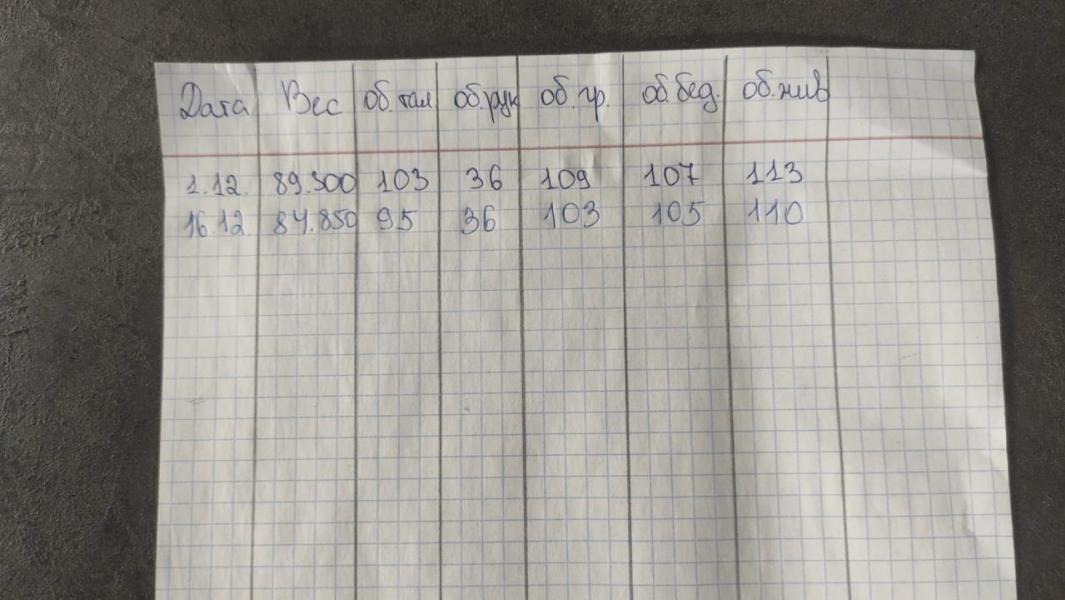 Дата Вес об.тал об.рук об.гр. об.бед. об.жив
1.12. 89.300 103 36 109 107 113
16.12 84.850 95 36 103 105 110